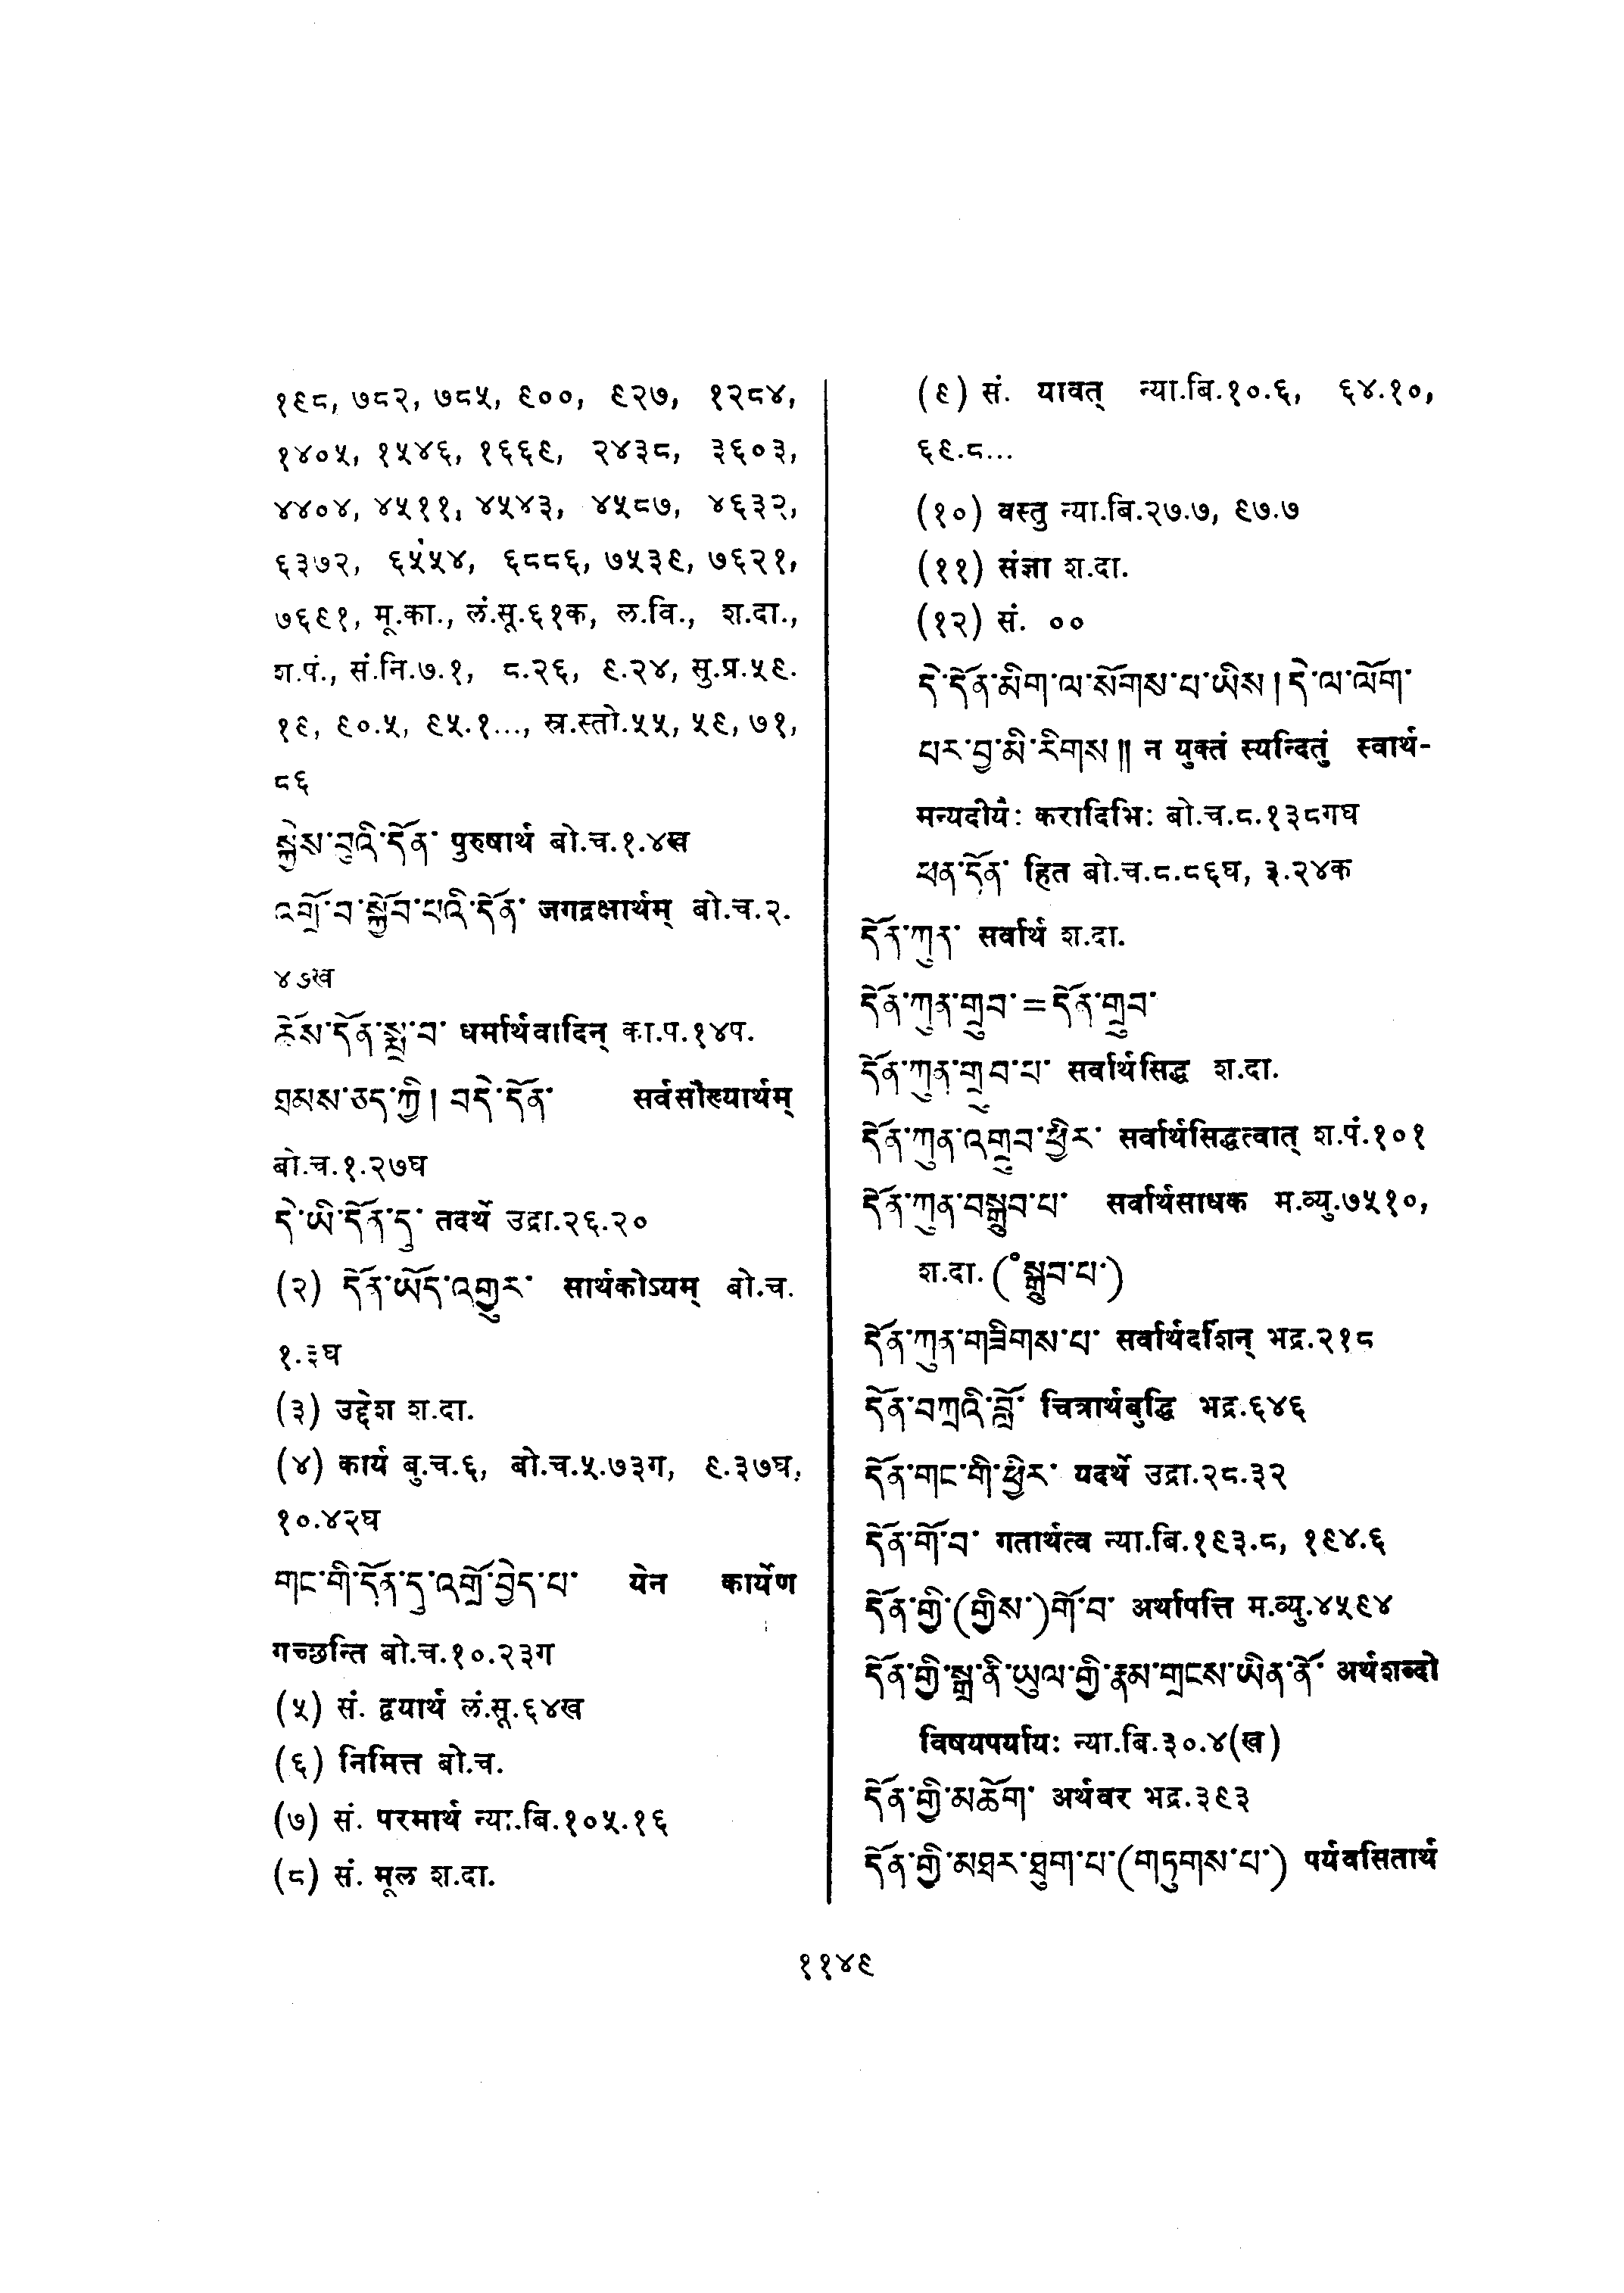 १९८, ७८२, ७८५, ९००, ९२७, १२८४,
१४०५, १५४६, १६६९, २४३८, ३६०३,
४४०४, ४५११, ४५४३, ४५८७, ४६३२,
६३७२, ६५५४, ६८८६, ७५३९, ७६२१,
७६९१, मू.का., लं.सू.६१क, ल.वि., श.दा.,
श.पं., सं.नि.७.१, ८.२६, ९.२४, सु.प्र.५९.
१९, ९०.५, ९५.१..., स्र.स्तो.५५, ५९, ७१,
८६
སྐྱེས་བུའི་དོན་ पुरुषार्थ बो.च.१.४ख
འགྲོ་བ་སྐྱོབ་པའི་དོན་ जगद्रक्षार्थम् बो.च.२.
४ॖख
ཆོས་དོན་སྨྲ་བ་ धर्मार्थवादिन् का.प.१४प.
ཐམས་ཅད་ཀྱི། བདེ་དོན་ सर्वसौख्यार्थम्
बो.च.१.२७घ
དེ་ཡི་དོན་དུ་ तदर्थे उद्रा.२६.२०
(२) དོན་ཡོད་འགྱུར་ सार्थकोऽयम् बो.च.
१.३घ
(३) उद्देश श.दा.
(४) कार्य बु.च.६, बो.च.५.७३ग, ९.३७घ,
१०.४२घ
གང་གི་དོན་དུ་འགྲོ་བྱེད་པ་ येन कार्येण
गच्छन्ति बो.च.१०.२३ग
(५) सं. द्वयार्थ लं.सू.६४ख
(६) निमित्त बो.च.
(७) सं. परमार्थ न्या.बि.१०५.१६
(८) सं. मूल श.दा.
(९) सं. यावत् न्या.बि.१०.६, ६४.१०,
६९.८...
(१०) वस्तु न्या.बि.२७.७, ९७.७
(११) संज्ञा श.दा.
(१२) सं. ००
དེ་དོན་མིག་ལ་སོགས་པ་ཡིས། དེ་ལ་ལོག་
པར་བྱ་མི་རིགས༎ न युक्तं स्यन्दितुं स्वार्थ-
मन्यदीयैः करादिभिः बो.च.८.१३८गघ
ཕན་དོན་ हित बो.च.८.८६घ, ३.२४क
དོན་ཀུན་ सर्वार्थ श.दा.
དོན་ཀུན་གྲུབ་ = དོན་གྲུབ་
དོན་ཀུན་གྲུབ་པ་ सर्वार्थसिद्ध श.दा.
དོན་ཀུན་འགྲུབ་ཕྱིར་ सर्वार्थसिद्धत्वात् श.पं.१०१
དོན་ཀུན་བསྒྲུབ་པ་ सर्वार्थसाधक म.व्यु.७५१०,
श.दा. (°སྒྲུབ་པ་)
དོན་ཀུན་གཟིགས་པ་ सर्वार्थदर्शिन् भद्र.२१८
དོན་བཀྲའི་བློ་ चित्रार्थबुद्धि भद्र.६४६
དོན་གང་གི་ཕྱིར་ यदर्थे उद्रा.२८.३२
དོན་གོ་བ་ गतार्थत्व न्या.बि.१९३.८, १९४.६
དོན་གྱི་(གྱིས་)གོ་བ་ अर्थापत्ति म.व्यु.४५९४
དོན་གྱི་སྒྲ་ནི་ཡུལ་གྱི་རྣམ་གྲངས་ཡིན་ནོ་ अर्थशब्दो
विषयपर्यायः न्या.बि.३०.४(ख)
དོན་གྱི་མཆོག་ अर्थवर भद्र.३९३
དོན་གྱི་མཐར་ཐུག་པ་(གཏུགས་པ་) पर्यवसितार्थ
११४९